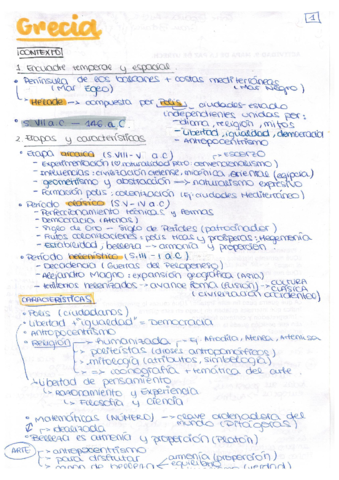 Grecia
1
CONTEXTO
1. Encuadre temporal y espacial
• Península de los balcanes + costas mediterráneas
(Mar Egeo) (Mar Negro)
↳ Hélade → compuesta por Polis, ciudades-estado
independientes unidas por:
• S. VIII a.C - 146 a.C
- idioma, religión, mitos
- Libertad, igualdad, democracia
2. Etapas y características
- Antropocentrismo
• Etapa arcaica (S. VIII-V a.C)
- experimentación
- geometrismo y abstracción → naturalismo expresivo
- Formación polis: colonización (ej: ciudades Mediterráneo)
• Período clásico (S. V-IV a.C)
- Perfeccionamiento técnicas y formas
- Democracia (Atenas)
- Siglo de Oro - Siglo de Pericles (patrocinador)
- Polis colonizaciones: polis ricas y prósperas: Hegemonía
- estabilidad, belleza → armonía y proporción
• Período helenístico (S. III - I a.C)
- Decadencia (Guerras del Peloponeso)
- Alejandro Magno: expansión geográfica (Asia)
- avance Roma (fusión) → CULTURA
CLÁSICA
(civilización occidental)
CARACTERÍSTICAS
• Polis (ciudadanos)
• Libertad + "igualdad" = Democracia
• Antropocentrismo
• Religión → humanizada → ej Afrodita, Atenea, Artemisa
↳ politeístas (dioses antropomórficos)
↳ mitología (atributos, simbología)
↳ => iconografía + temática del arte
↳ Libertad de pensamiento
↳ Razonamiento y Experiencia
↳ Filosofía y Ciencia
• Matemáticas (NÚMERO) → clave ordenadora del
mundo (Pitágoras)
↳ idealizada
• Belleza es armonía y proporción (Platón)
ARTE
↳ antropocentrismo
↳ para disfrutar
armonía (proporción)
↳ belleza
equilibrio